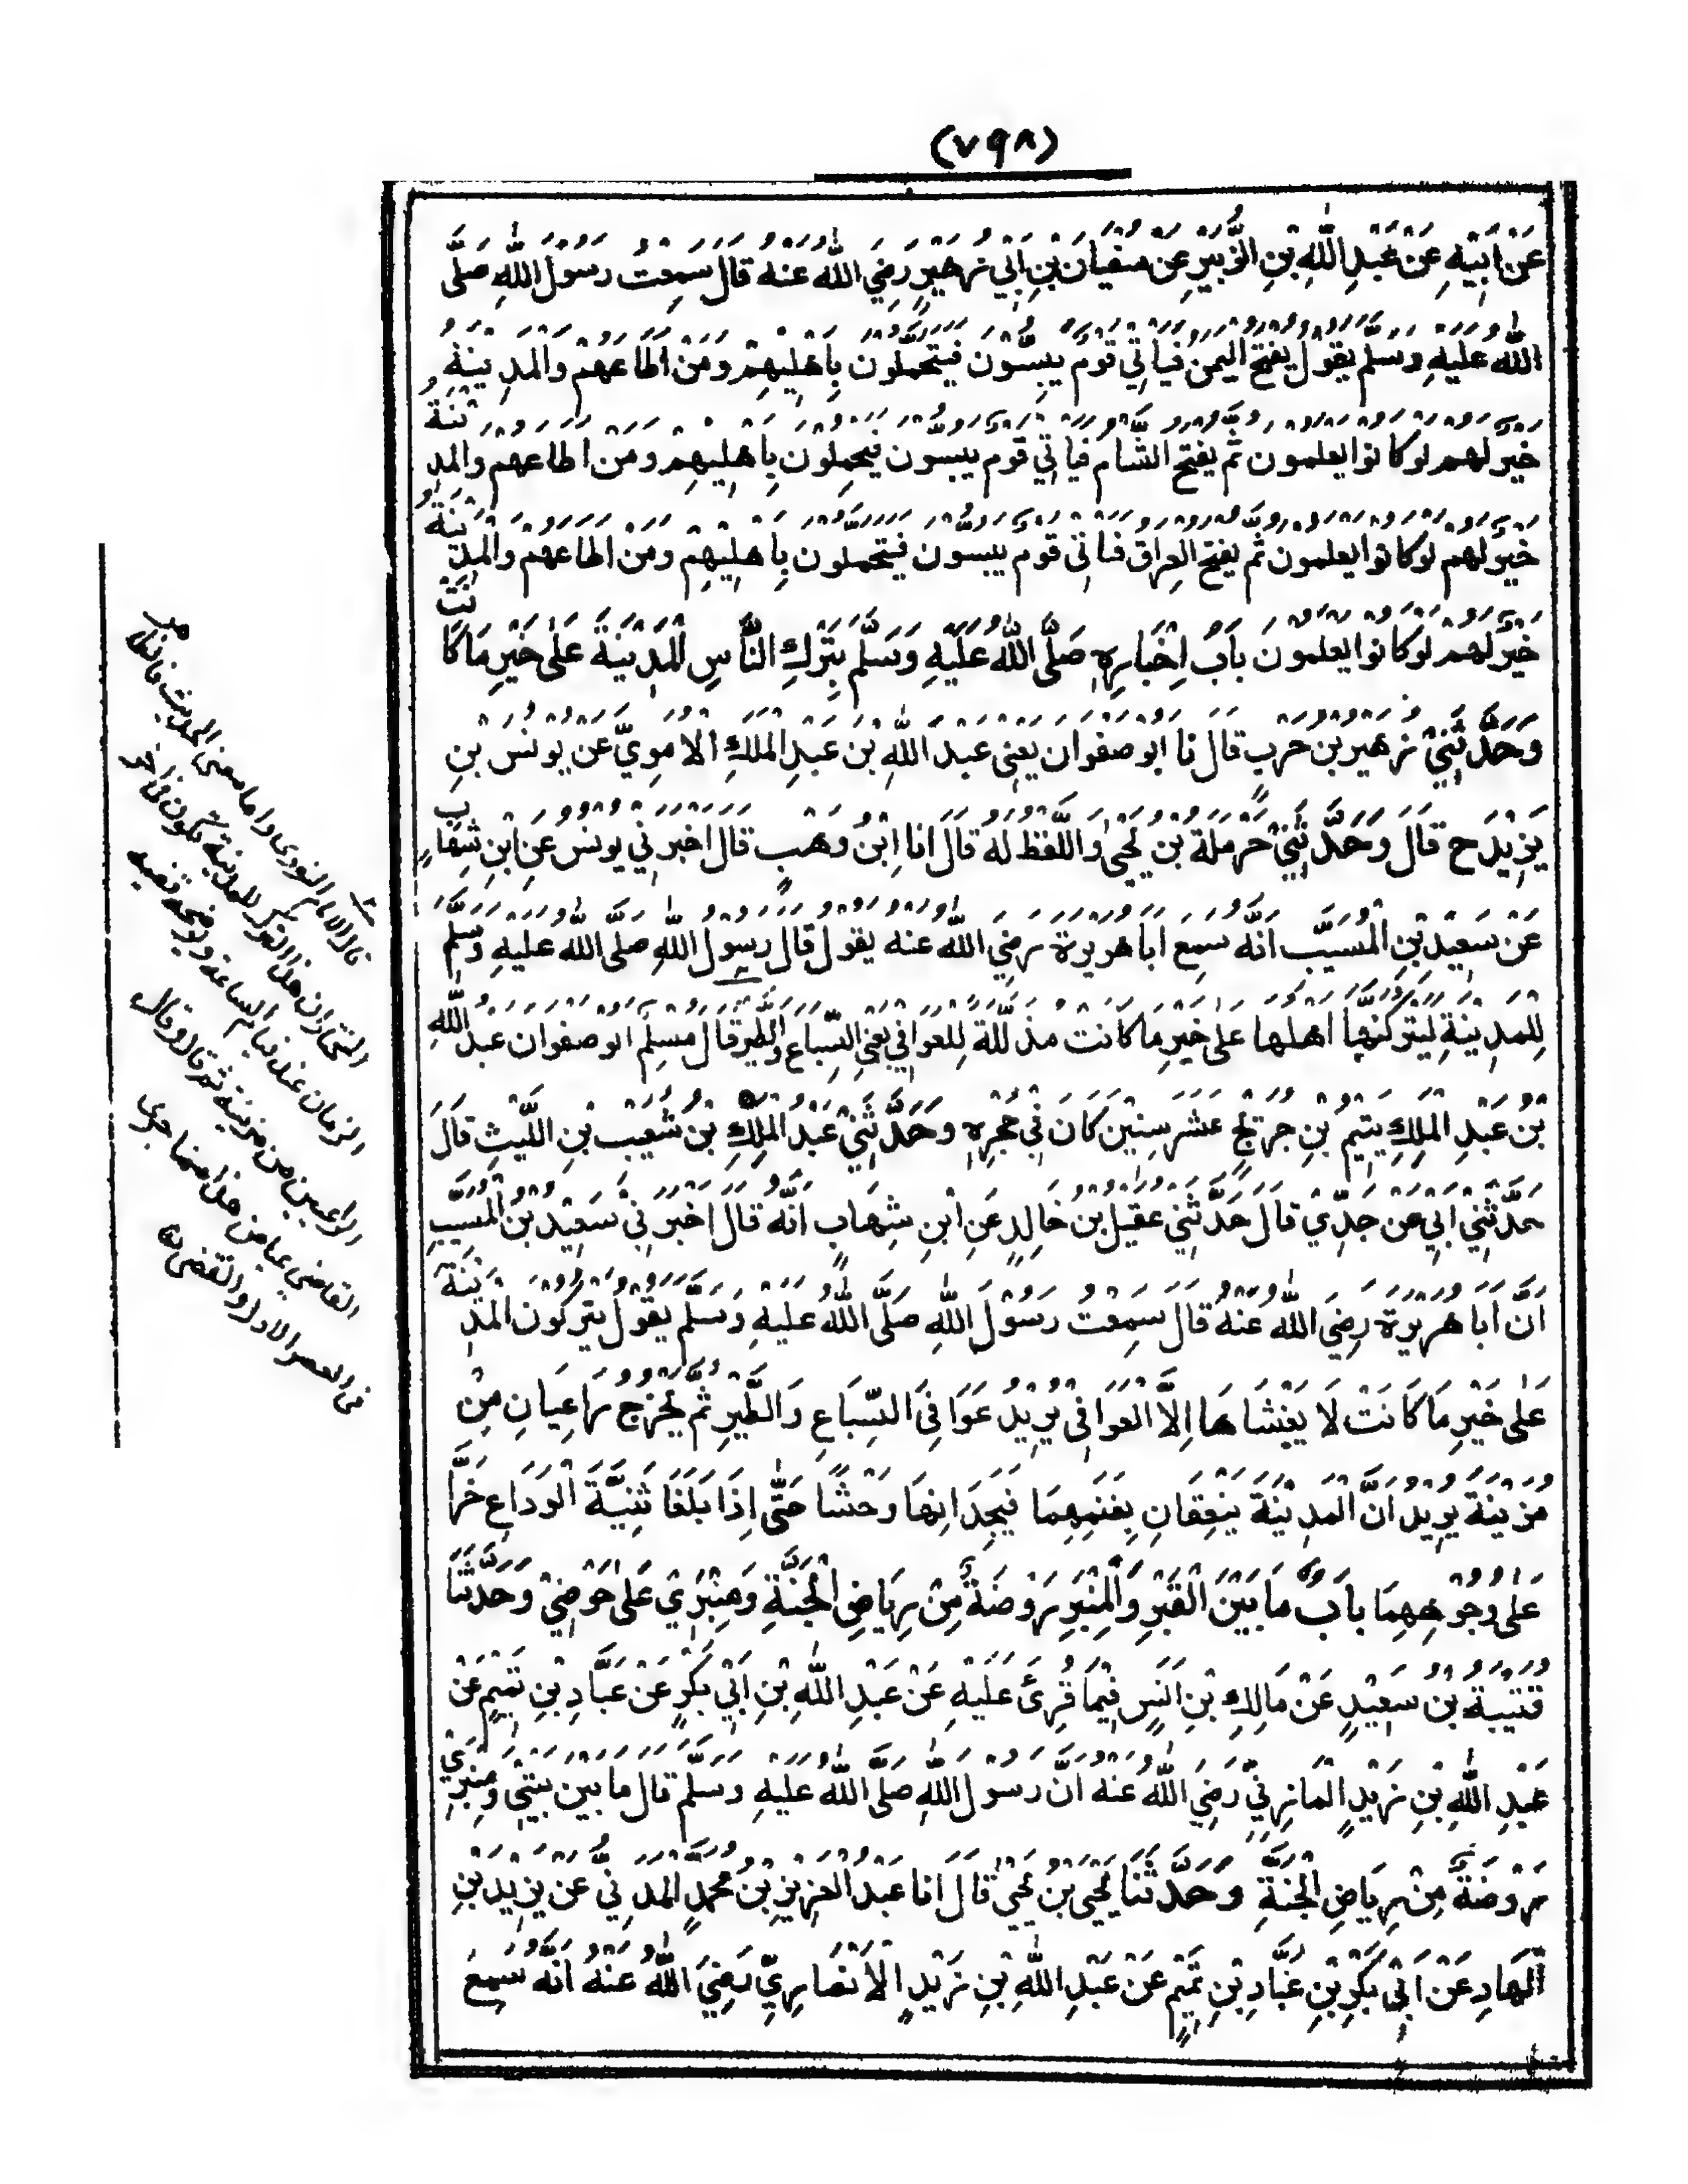 (٧٩٨)
عَنْ اَبِيْهِ عَنْ عَبْدِ اللّٰهِ بْنِ الزُّبَيْرِ عَنْ سُفْيَانَ بْنِ اَبِيْ زُهَيْرٍ رَضِيَ اللّٰهُ عَنْهُ قَالَ سَمِعْتُ رَسُوْلَ اللّٰهِ صَلَّى
اللّٰهُ عَلَيْهِ وَسَلَّمَ يَقُوْلُ يُفْتَحُ الْيَمَنُ فَيَأْتِيْ قَوْمٌ يَبُسُّوْنَ فَيَتَحَمَّلُوْنَ بِاَهْلِيْهِمْ وَمَنْ اَطَاعَهُمْ وَالْمَدِيْنَةُ
خَيْرٌ لَهُمْ لَوْ كَانُوْا يَعْلَمُوْنَ ثُمَّ يُفْتَحُ الشَّامُ فَيَأْتِيْ قَوْمٌ يَبُسُّوْنَ فَيَحْمِلُوْنَ بِاَهْلِيْهِمْ وَمَنْ اَطَاعَهُمْ وَالْمَدِيْنَةُ
خَيْرٌ لَهُمْ لَوْ كَانُوْا يَعْلَمُوْنَ ثُمَّ يُفْتَحُ الْعِرَاقُ فَيَأْتِيْ قَوْمٌ يَبُسُّوْنَ فَيَتَحَمَّلُوْنَ بِاَهْلِيْهِمْ وَمَنْ اَطَاعَهُمْ وَالْمَدِيْنَةُ
خَيْرٌ لَهُمْ لَوْ كَانُوْا يَعْلَمُوْنَ بَابُ اِخْبَارِهِ صَلَّى اللّٰهُ عَلَيْهِ وَسَلَّمَ بِتَرْكِ النَّاسِ الْمَدِيْنَةَ عَلٰى خَيْرِ مَا كَانَتْ
وَحَدَّثَنِيْ زُهَيْرُ بْنُ حَرْبٍ قَالَ نَا اَبُوْ صَفْوَانَ يَعْنِيْ عَبْدَ اللّٰهِ بْنَ عَبْدِ الْمَلِكِ الْاُمَوِيَّ عَنْ يُوْنُسَ بْنِ
يَزِيْدَ ح قَالَ وَحَدَّثَنِيْ حَرْمَلَةُ بْنُ يَحْيٰى وَاللَّفْظُ لَهُ قَالَ اَنَا اِبْنُ وَهْبٍ قَالَ اَخْبَرَنِيْ يُوْنُسُ عَنِ ابْنِ شِهَابٍ
عَنْ سَعِيْدِ بْنِ الْمُسَيَّبِ اَنَّهُ سَمِعَ اَبَا هُرَيْرَةَ رَضِيَ اللّٰهُ عَنْهُ يَقُوْلُ قَالَ رَسُوْلُ اللّٰهِ صَلَّى اللّٰهُ عَلَيْهِ وَسَلَّمَ
لِلْمَدِيْنَةِ لَيَتْرُكَنَّهَا اَهْلُهَا عَلٰى خَيْرِ مَا كَانَتْ مُذَلَّلَةً لِلْعَوَافِيْ يَعْنِي السِّبَاعَ وَالطَّيْرَ قَالَ مُسْلِمٌ اَبُوْ صَفْوَانَ عَبْدُ اللّٰهِ
بْنُ عَبْدِ الْمَلِكِ يَتِيْمُ بْنِ جُرَيْجٍ عَشْرَ سِنِيْنَ كَانَ فِيْ حَجْرِهِ وَحَدَّثَنِيْ عَبْدُ الْمَلِكِ بْنُ شُعَيْبِ بْنِ اللَّيْثِ قَالَ
حَدَّثَنِيْ اَبِيْ عَنْ جَدِّيْ قَالَ حَدَّثَنِيْ عُقَيْلُ بْنُ خَالِدٍ عَنِ ابْنِ شِهَابٍ اَنَّهُ قَالَ اَخْبَرَنِيْ سَعِيْدُ بْنُ الْمُسَيَّبِ
اَنَّ اَبَا هُرَيْرَةَ رَضِيَ اللّٰهُ عَنْهُ قَالَ سَمِعْتُ رَسُوْلَ اللّٰهِ صَلَّى اللّٰهُ عَلَيْهِ وَسَلَّمَ يَقُوْلُ يَتْرُكُوْنَ الْمَدِيْنَةَ
عَلٰى خَيْرِ مَا كَانَتْ لَا يَغْشَاهَا اِلَّا الْعَوَافِيْ يُرِيْدُ عَوَافِيَ السِّبَاعِ وَالطَّيْرِ ثُمَّ يَخْرُجُ رَاعِيَانِ مِنْ
مُزَيْنَةَ يُرِيْدَانِ الْمَدِيْنَةَ يَنْعِقَانِ بِغَنَمِهِمَا فَيَجِدَانِهَا وَحْشًا حَتّٰى اِذَا بَلَغَا ثَنِيَّةَ الْوَدَاعِ خَرَّا
عَلٰى وُجُوْهِهِمَا بَابُ مَا بَيْنَ الْقَبْرِ وَالْمِنْبَرِ رَوْضَةٌ مِنْ رِيَاضِ الْجَنَّةِ وَمِنْبَرِيْ عَلٰى حَوْضِيْ وَحَدَّثَنَا
قُتَيْبَةُ بْنُ سَعِيْدٍ عَنْ مَالِكِ بْنِ اَنَسٍ فِيْمَا قُرِئَ عَلَيْهِ عَنْ عَبْدِ اللّٰهِ بْنِ اَبِيْ بَكْرٍ عَنْ عَبَّادِ بْنِ تَمِيْمٍ عَنْ
عَبْدِ اللّٰهِ بْنِ زَيْدٍ الْمَازِنِيِّ رَضِيَ اللّٰهُ عَنْهُ اَنَّ رَسُوْلَ اللّٰهِ صَلَّى اللّٰهُ عَلَيْهِ وَسَلَّمَ قَالَ مَا بَيْنَ بَيْتِيْ وَمِنْبَرِيْ
رَوْضَةٌ مِنْ رِيَاضِ الْجَنَّةِ وَحَدَّثَنَا يَحْيَى بْنُ يَحْيٰى قَالَ اَنَا عَبْدُ الْعَزِيْزِ بْنُ مُحَمَّدٍ الْمَدَنِيُّ عَنْ يَزِيْدَ بْنِ
الْهَادِ عَنْ اَبِيْ بَكْرِ بْنِ عَبَّادِ بْنِ تَمِيْمٍ عَنْ عَبْدِ اللّٰهِ بْنِ زَيْدٍ الْاَنْصَارِيِّ رَضِيَ اللّٰهُ عَنْهُ اَنَّهُ سَمِعَ
قال الامام النووى واما معنى الحديث فالظاهر
المختار ان هذا الترك للمدينة يكون فى اخر
الزمان عند قيام الساعة ويوضحه قصة
الراعيين من مزينة ثم قال وقال
القاضى عياض هذا مما جرى
فى العصر الاول وانقضى